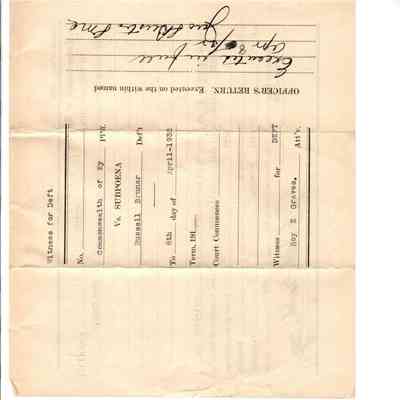 Witness for Deft
No.
Commonwealth of Ky Pltff.
Vs. SUBPOENA
Russell Brumar Deft
To 8th day of April-1932
Term, 191
Court Commences
Witness for DEFT
Roy E Graves, Att'y.
OFFICER'S RETURN. Executed on the within named
Executed in full
Apr 8